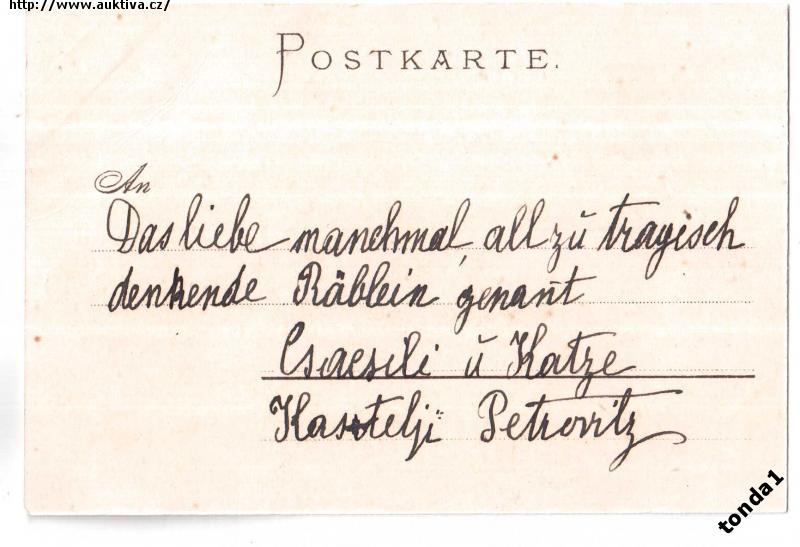 http://www.auktiva.cz/
POSTKARTE.
An
Das liebe manchmal, all zŭ tragisch
denkende Räblein genant
Csacsili ŭ Katze
Kasztelji Petrovitz
tonda1